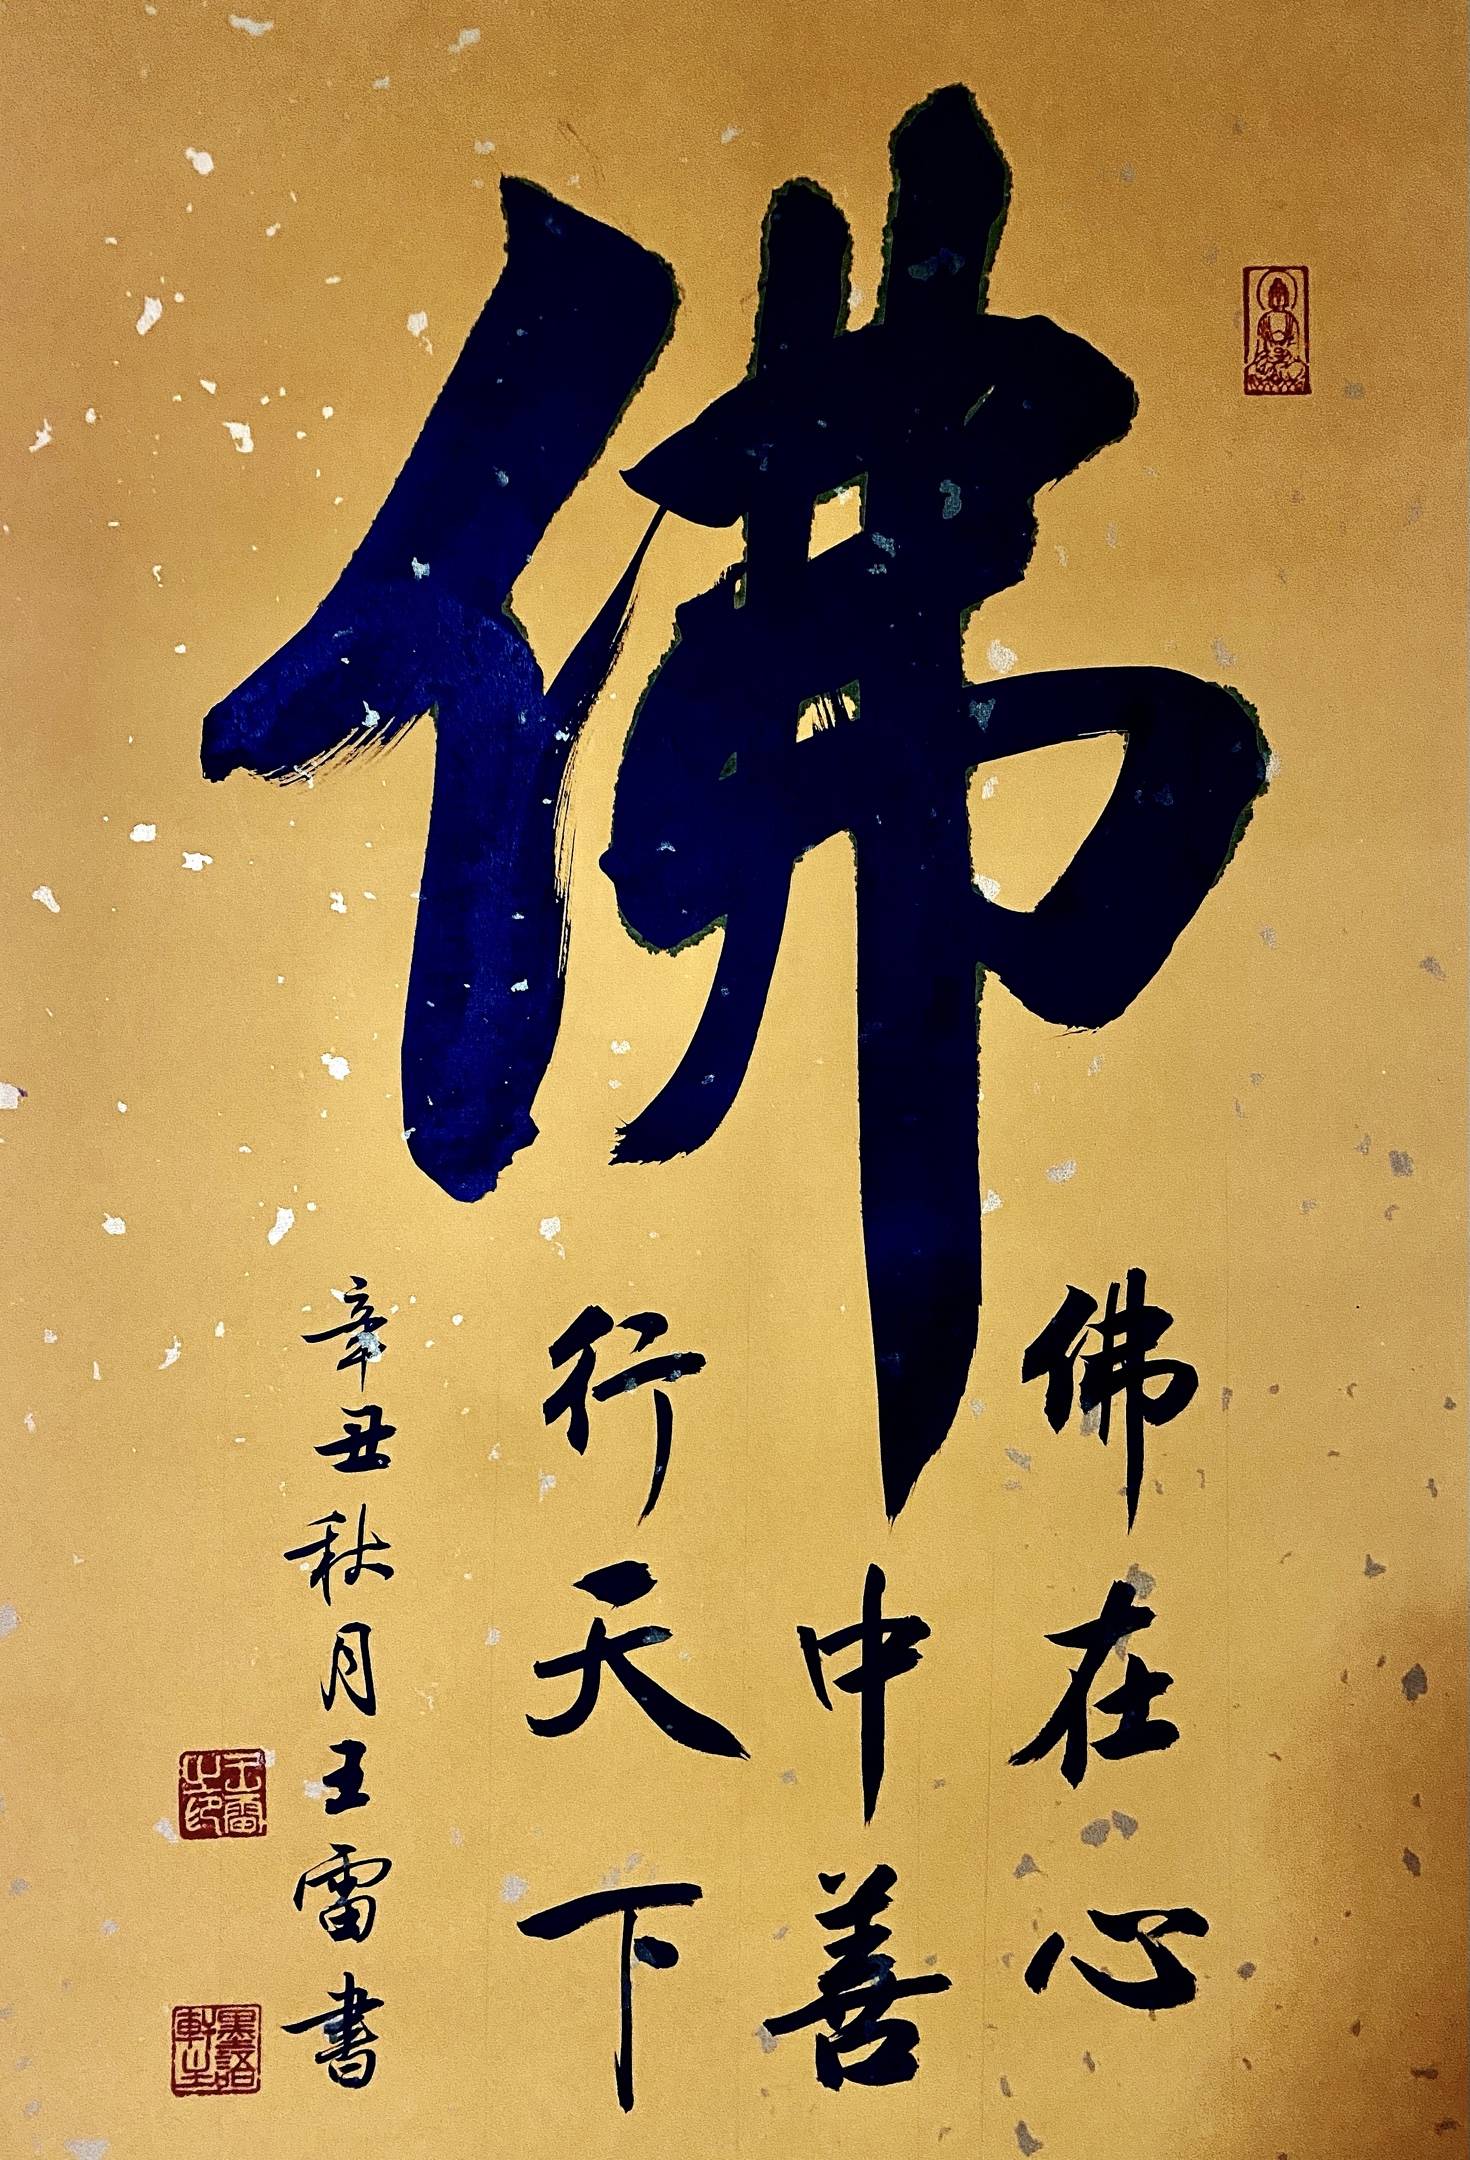 佛
佛在心
中善
行天下
辛丑秋月王雷書
王雷之印
墨語軒主